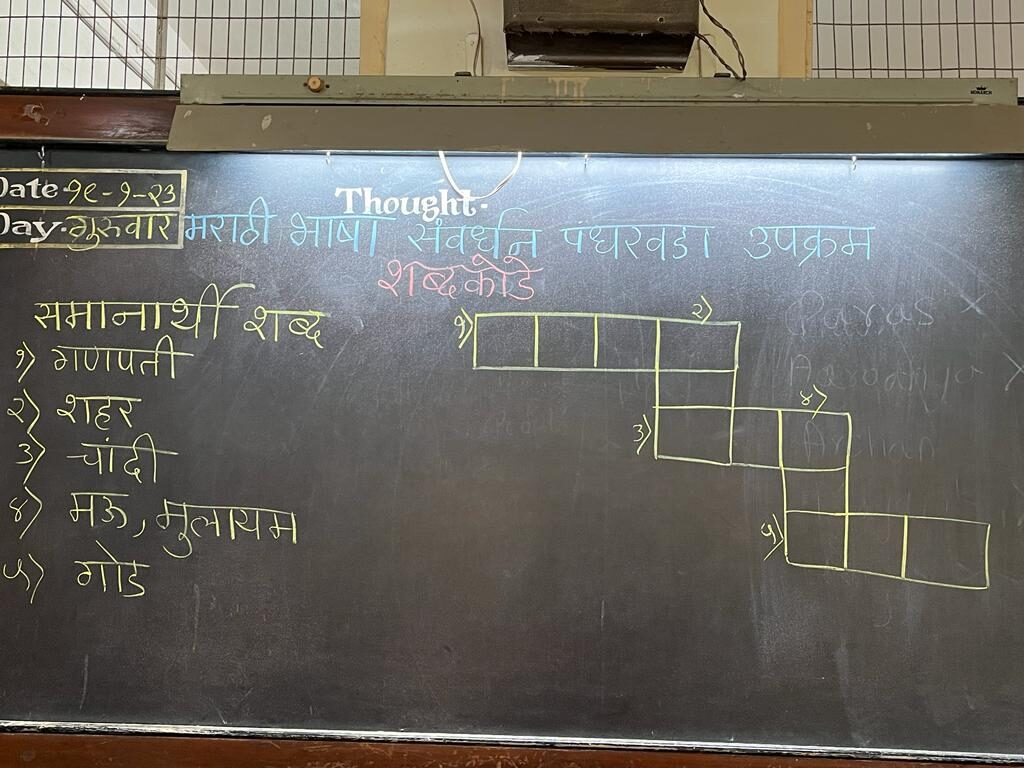 MONARCH
Date-१९-१-२३
Thought-
Day-गुरुवार मराठी भाषा संवर्धन पंधरवडा उपक्रम
शब्दकोडे
समानार्थी शब्द
१)
२)
१) गणपती
२) शहर
३) चांदी
३)
४)
४) मऊ, मुलायम
५)
५) गोड
Paras x
Aaradhya x
Arshan